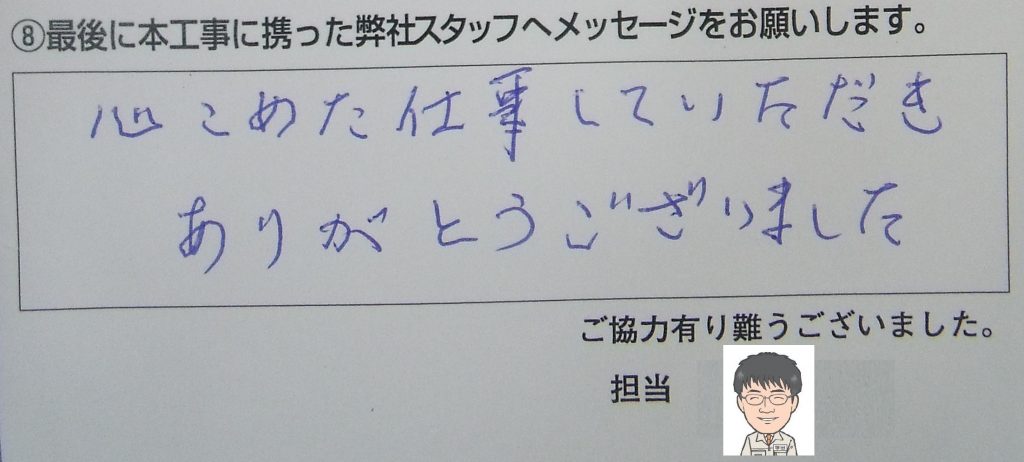 ⑧最後に本工事に携った弊社スタッフへメッセージをお願いします。
心こめた仕事していただき
ありがとうございました
ご協力有り難うございました。
担当